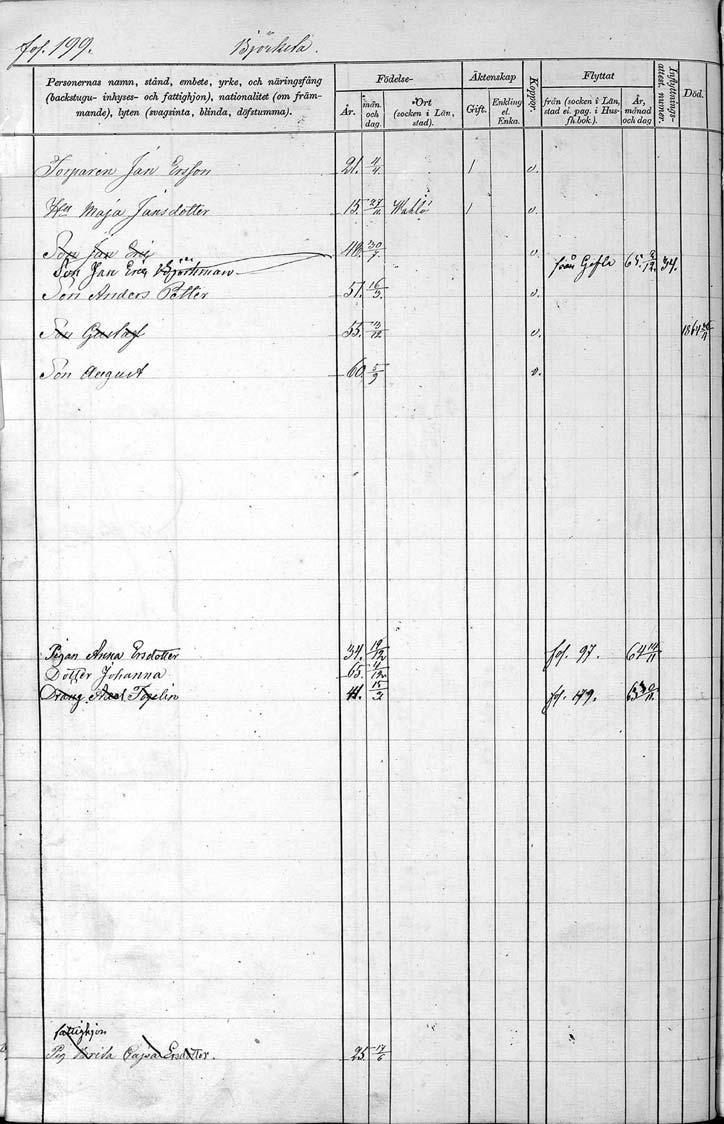 fol. 199. Björkela.
Personernas namn, stånd, embete, yrke, och näringsfång (backstugu- inhyses- och fattighjon), nationalitet (om främmande), lyten (svagsinta, blinda, döfstumma).
Födelse- Äktenskap Koppor. Flyttat Inflyttnings-attest. numer. Död.
År. mån. och dag. Ort (socken i Län, stad). Gift. Enkling el. Enka. från (socken i Län, stad el. pag. i Husfh.bok). År, månad och dag
Torparen Jan Ersson 21. 4/4. 1 v.
Hu Maja Jansdotter 15. 27/11 Wahlö 1 v.
Son Jan Eric 40. 30/7. v.
Son Jan Eric Björkman från Gefle 65. 2/12. 34.
Son Anders Petter 51. 16/3. v.
Son Gustaf 55. 13/12 v. 1864
Son August 60. 5/9 v.
Pigan Anna Ersdotter 34. 19/12 fol. 97. 64 14/11
Dotter Johanna 65. 4/12
Dräng Axel 44. 15/3 fol. 179. 63
fattighjon
Pig Brita Cajsa Ersdotter. 25 17/6